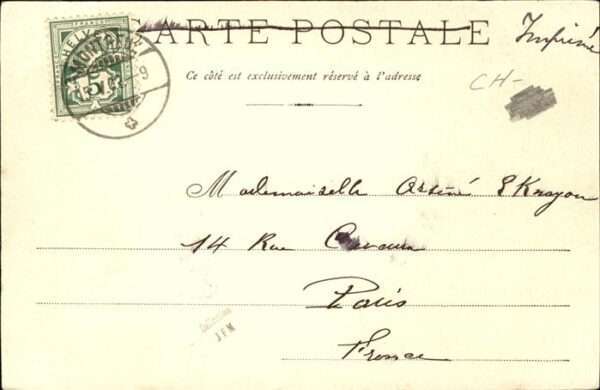 CARTE POSTALE
Imprimé
Ce côté est exclusivement réservé à l'adresse
CH-
HELV
MONTREUX
5
9
Mademoiselle
14 Rue
Paris
France
Collection
JFM